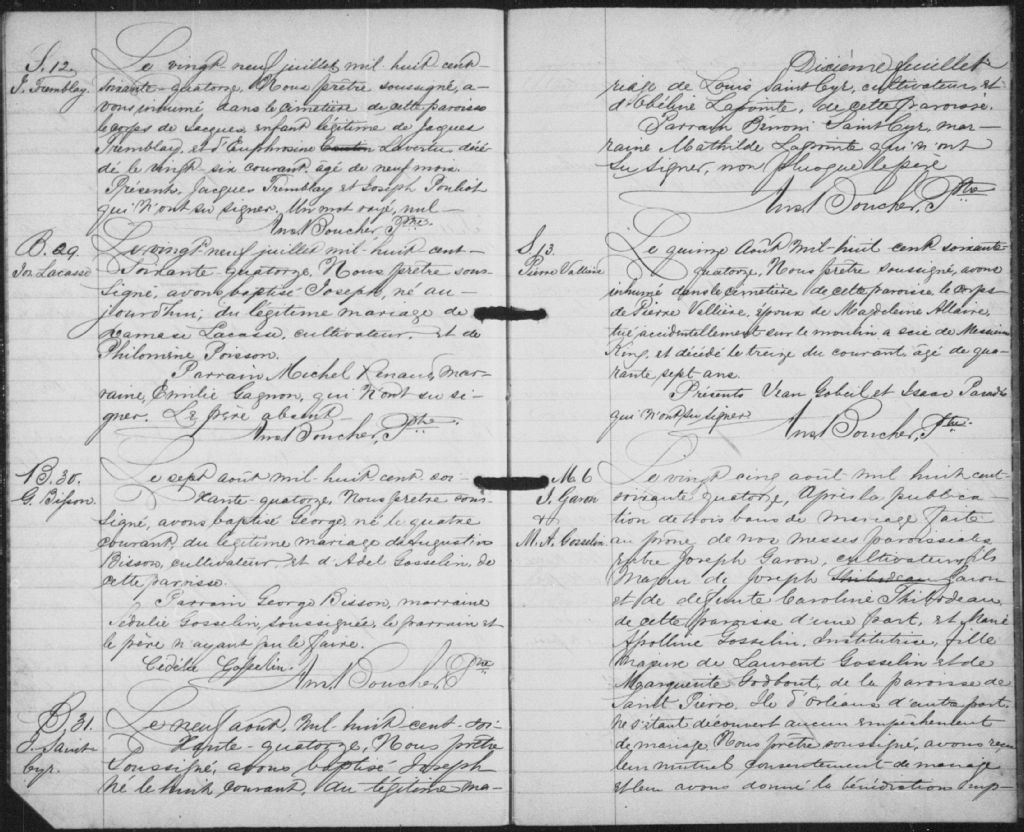 S. 12.
J. Tremblay.
Le vingt-neuf juillet mil-huit cent
soixante-quatorze, Nous prêtre soussigné, a-
vons inhumé dans le cimetière de cette paroisse
le corps de Jacques, enfant légitime de Jacques
Tremblay, et d'Euphrosine Lavertu, décé-
dé le vingt-six courant, âgé de neuf mois.
Présents, Jacques Tremblay et Joseph Pouliot
qui n'ont su signer. Un mot rayé, nul—
Ans. Boucher, Ptre.
B. 29.
Jos Lacasse
Le vingt-neuf juillet mil-huit-cent-
soixante-quatorze, Nous prêtre sous-
signé, avons baptisé Joseph, né au-
jourd'hui, du légitime mariage de
Damase Lacasse, cultivateur, et de
Philomène Poisson.
Parrain Michel Renaud, mar-
raine, Emilie Gagnon, qui n'ont su si-
gner. Le père absent—
Ans. Boucher, Ptre.
B. 30.
G. Bisson.
Le sept août mil-huit cent soi-
xante-quatorze, Nous prêtre sous-
signé, avons baptisé George, né le quatre
courant, du légitime mariage d'Augustin
Bisson, cultivateur, et d'Adel Gosselin, de
cette paroisse.
Parrain George Bisson, marraine
Sédulie Gosselin, soussignée, le parrain et
le père n'ayant pu le faire.
Cédélie Gosselin.
Ans. Boucher, Ptre
B. 31.
J. Saint-
Cyr.
Le neuf août, mil huit cent-soi-
xante-quatorze, Nous prêtre
soussigné, avons baptisé Joseph
né le huit courant, du légitime ma-
Dixième feuillet
riage de Louis Saint Cyr, cultivateur, et
d'Obéline Lapointe, de cette paroisse.
Parrain Bénoni Saint Cyr, mar-
raine Mathilde Lapointe qui n'ont
su signer, non plus que le père
Ans. Boucher, Ptre
S. 13.
Pierre Vallière
Le quinze Août mil-huit cent soixante-
quatorze, Nous prêtre soussigné, avons
inhumé dans le cimetière de cette paroisse, le corps
de Pierre Vallière, époux de Magdeleine Allaire,
tué accidentellement sur le moulin à scie de Messieurs
King, et décédé le treize du courant, âgé de qua-
rante sept ans.
Présents Jean Gobeil et Isaac Paradis
qui n'ont su signer
Ans. Boucher, Ptre.
M. 6
J. Garon
&
M. A. Gosselin
Le vingt cinq août mil huit cent
soixante quatorze, Après la publica-
tion de trois bans de mariage faite
au prône de nos messes paroissiales
entre Joseph Garon, cultivateur, fils
majeur de Joseph Thibodeau Garon
et de défunte Caroline Thibodeau
de cette paroisse d'une part, et Marie
Apolline Gosselin, Institutrice, fille
majeure de Laurent Gosselin et de
Marguerite Godbout, de la paroisse de
Saint Pierre, Ile d'Orléans d'autre part;
ne s'étant découvert aucun empêchement
de mariage, Nous prêtre soussigné, avons reçu
leur mutuel consentement de mariage
et leur avons donné la bénédiction nup-